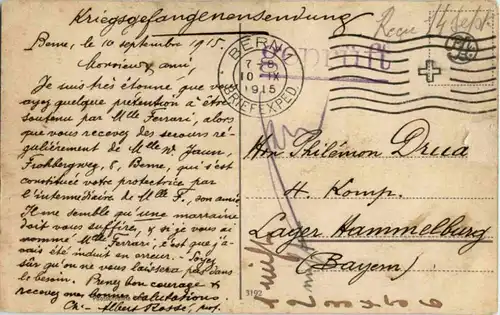 Kriegsgefangenensendung
Berne, le 10 septembre 1915.
Monsieur & ami,
Je suis très étonné que vous
ayez quelque prétention à être
soutenu par Mlle Ferrari, alors
que vous recevez des secours ré-
gulièrement de Mlle W. Jeaun,
Frohbergweg, 8, Berne, qui s'est
constituée votre protectrice par
l'intermédiaire de Mlle F., son amie
Il me semble qu'une marraine
doit vous suffire, & si je vous ai
nommé Mlle Ferrari, c'est que j'a-
vais été induit en erreur. - Soyez
sûr qu'on ne vous laissera pas dans
le besoin. Prenez bon courage &
recevez mes bonnes salutations.
Ch.- Albert Rossé, prof.
BERN 1
7-8
10 IX
1915
BRIEFEXPED.
Geprüft
Reçu 14 Sept
Hrn Philémon Drua
4. Komp.
Lager Hammelburg
(Bayern)
3192
1 2 3 4 5 6